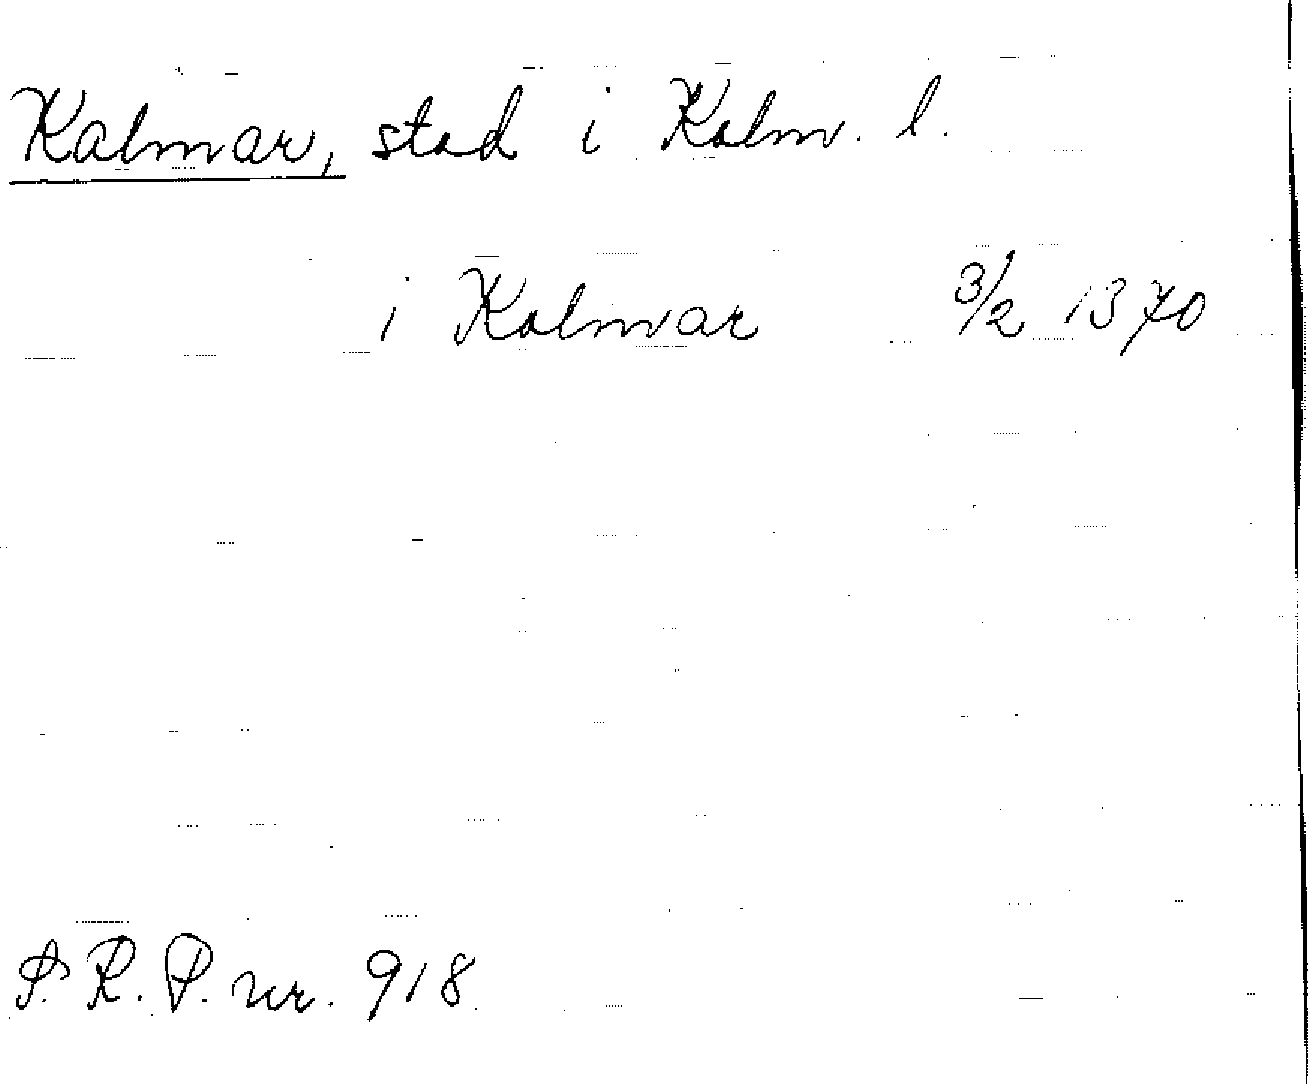 Kalmar, stad i Kalm. l.
i Kalmar 3/2 1370
S. R. P. nr. 918